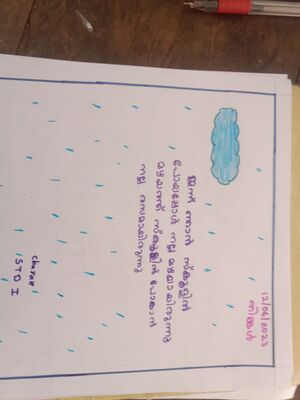 12/06/2023
തിങ്കൾ
ഇന്ന് ഞാൻ സ്കൂളിൽ
പോയപ്പോൾ നല്ല മഴയായിരുന്നു
മഴയത്ത് സ്കൂളിൽ പോകാൻ
നല്ല രസമായിരുന്നു
STD I